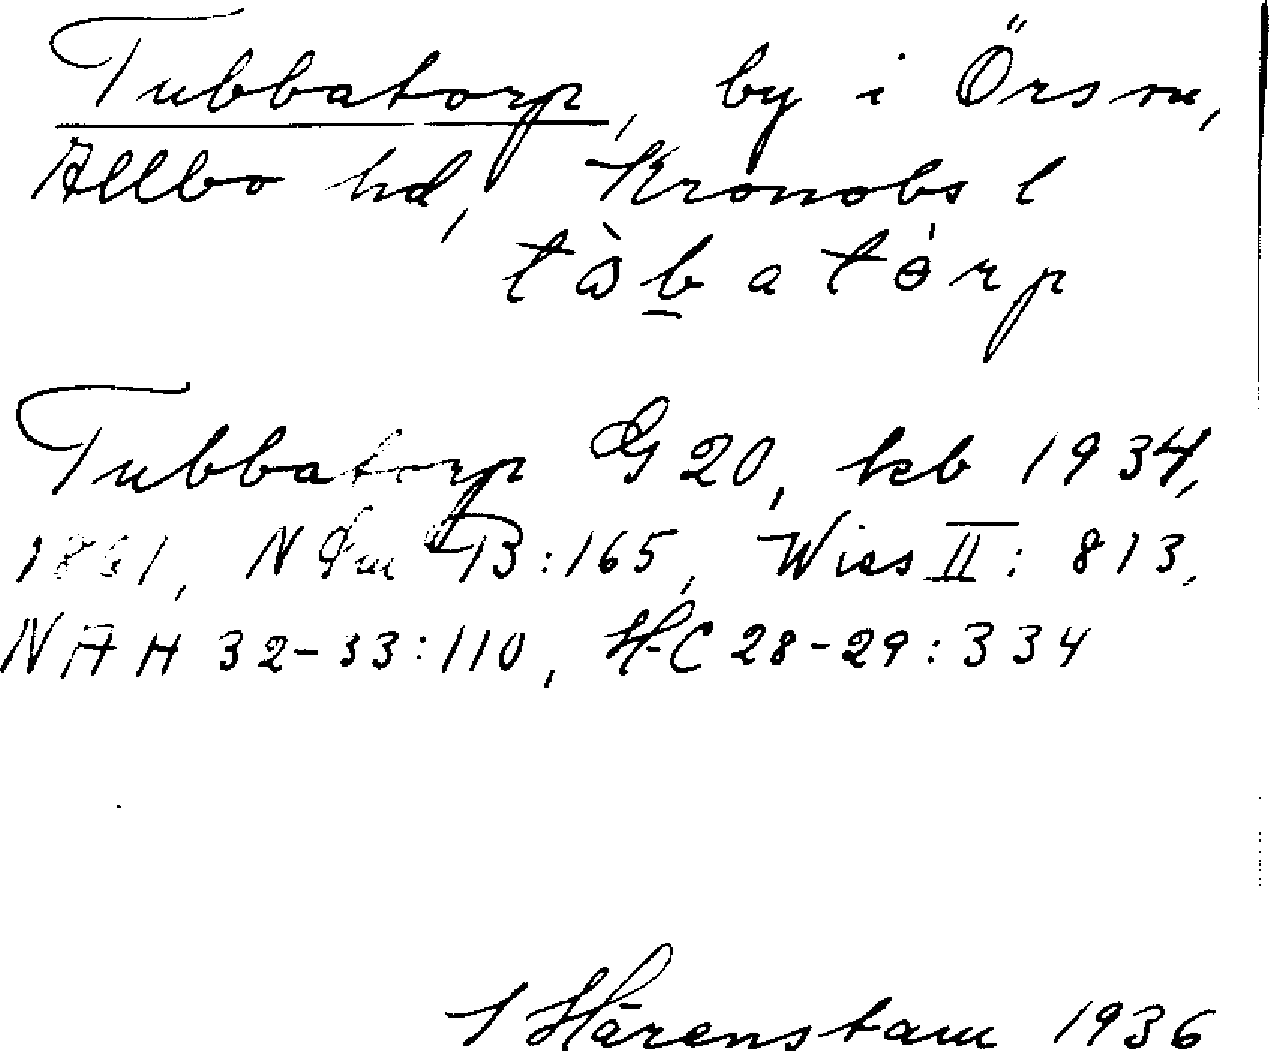 Tubbatorp, by i Örs sn,
Allbo hd, Kronobs l
tàbatȯrp
Tubbatorp G 20, kb 1934,
1861, NDm B:165, Wies II: 813,
NAH 32-33:110, HC 28-29:334
S Härenstam 1936